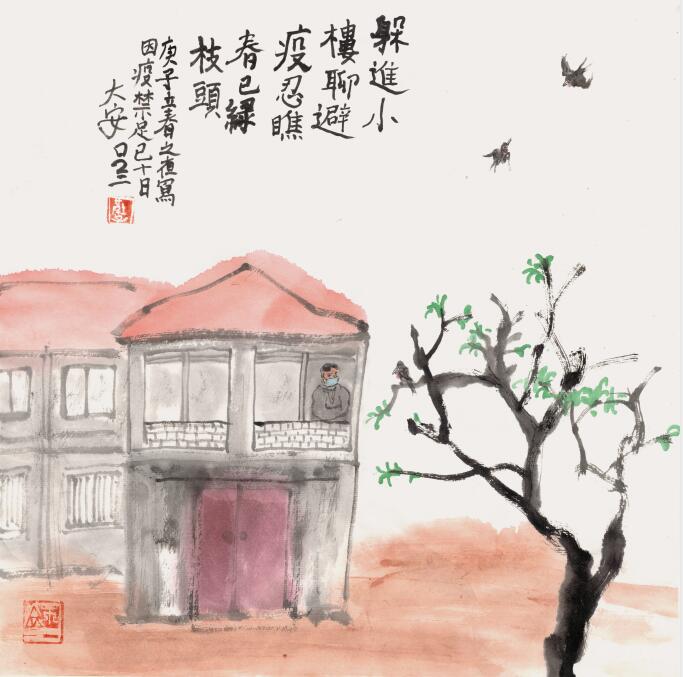 躲進小
樓聊避
疫忍瞧
春已綠
枝頭
庚子立春之夜寫
因疫禁足已十日
大安